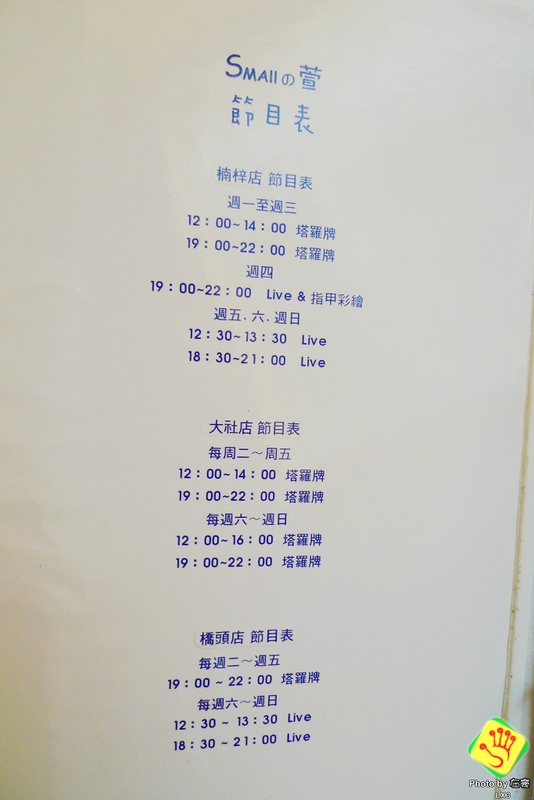 SMAllの萱
節目表
楠梓店 節目表
週一至週三
12：00~14：00 塔羅牌
19：00~22：00 塔羅牌
週四
19：00~22：00 Live & 指甲彩繪
週五.六.週日
12：30~13：30 Live
18：30~21：00 Live
大社店 節目表
每周二～周五
12：00~14：00 塔羅牌
19：00~22：00 塔羅牌
每週六～週日
12：00~16：00 塔羅牌
19：00~22：00 塔羅牌
橋頭店 節目表
每週二～週五
19：00 ~ 22：00 塔羅牌
每週六～週日
12：30 ~ 13：30 Live
18：30 ~ 21：00 Live
Photo by